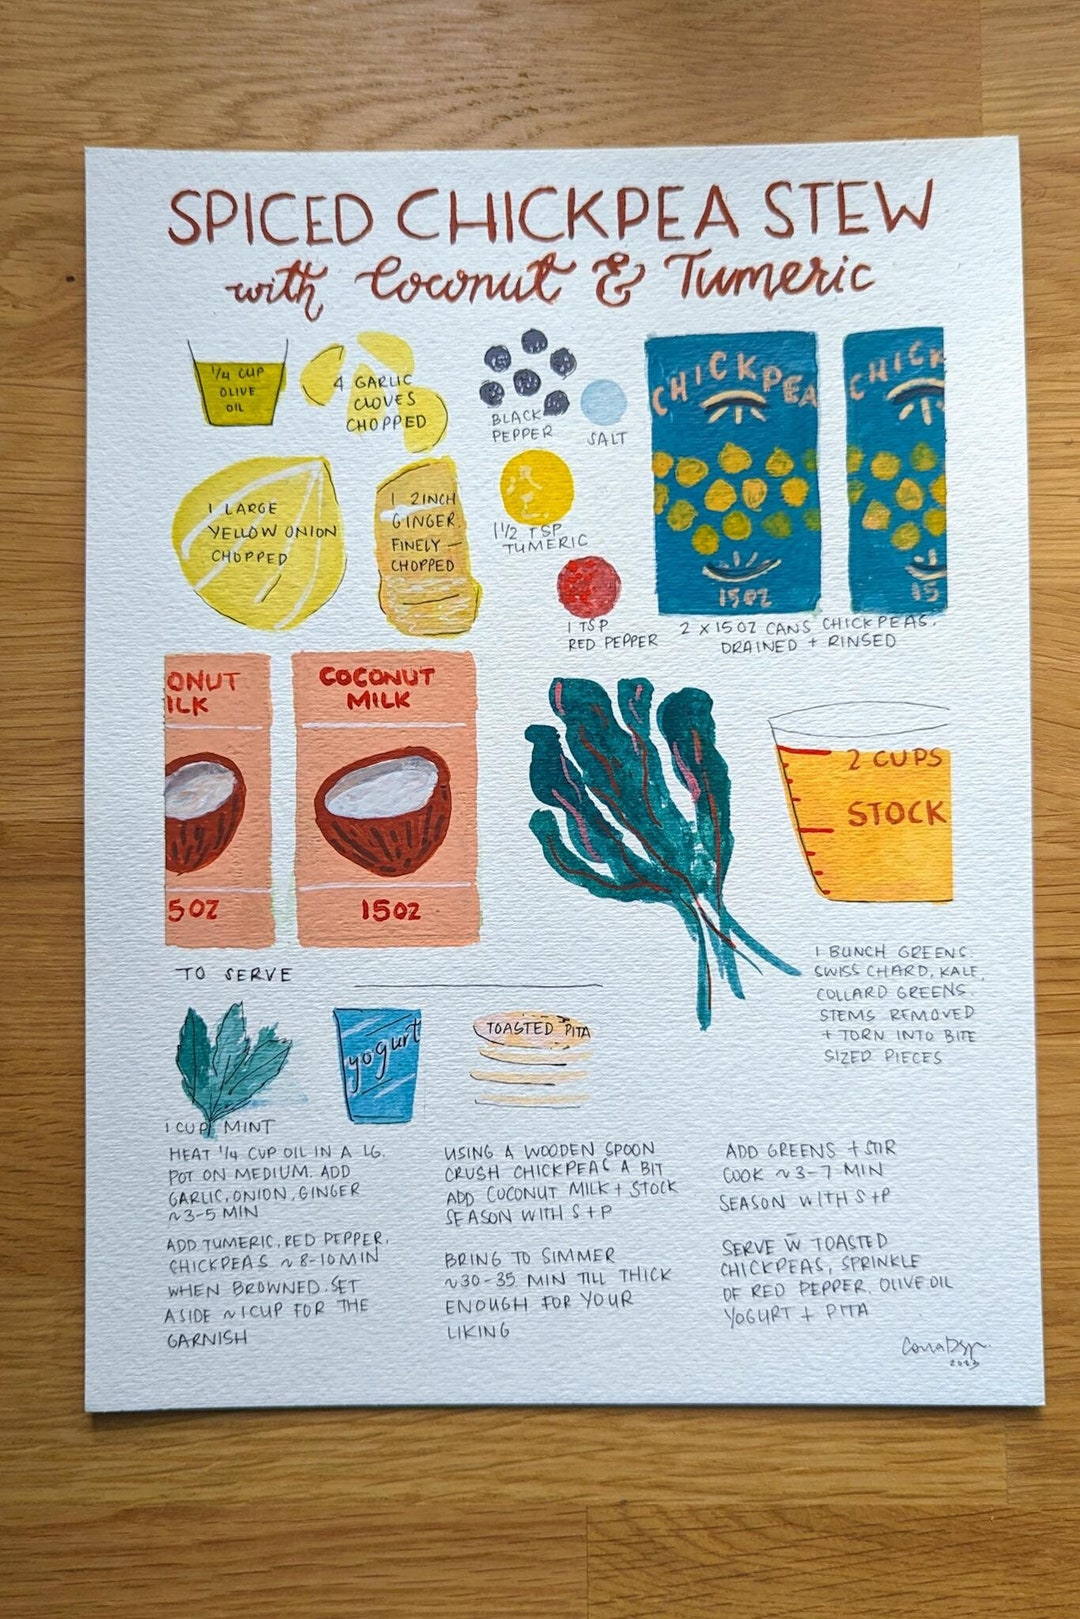 SPICED CHICKPEA STEW
with Coconut & Tumeric
1/4 CUP
OLIVE
OIL
4 GARLIC
CLOVES
CHOPPED
BLACK
PEPPER
SALT
CHICKPEA
15OZ
CHICK
15
1 LARGE
YELLOW ONION
CHOPPED
1 2INCH
GINGER.
FINELY –
CHOPPED
1 1/2 TSP
TUMERIC
1 TSP
RED PEPPER
2 X 15 OZ CANS CHICKPEAS.
DRAINED + RINSED
ONUT
ILK
5OZ
COCONUT
MILK
15OZ
2 CUPS
STOCK
1 BUNCH GREENS.
SWISS CHARD, KALE,
COLLARD GREENS.
STEMS REMOVED
+ TORN INTO BITE
SIZED PIECES
TO SERVE
1 CUP MINT
yogurt
TOASTED PITA
HEAT 1/4 CUP OIL IN A LG.
POT ON MEDIUM. ADD
GARLIC, ONION, GINGER
~3-5 MIN
ADD TUMERIC, RED PEPPER,
CHICKPEAS ~ 8-10 MIN
WHEN BROWNED. SET
ASIDE ~ 1 CUP FOR THE
GARNISH
USING A WOODEN SPOON
CRUSH CHICKPEAS A BIT
ADD COCONUT MILK + STOCK
SEASON WITH S+P
BRING TO SIMMER
~30-35 MIN TILL THICK
ENOUGH FOR YOUR
LIKING
ADD GREENS + STIR
COOK ~ 3-7 MIN
SEASON WITH S+P
SERVE W̄ TOASTED
CHICKPEAS, SPRINKLE
OF RED PEPPER. OLIVE OIL
YOGURT + PITA
2023